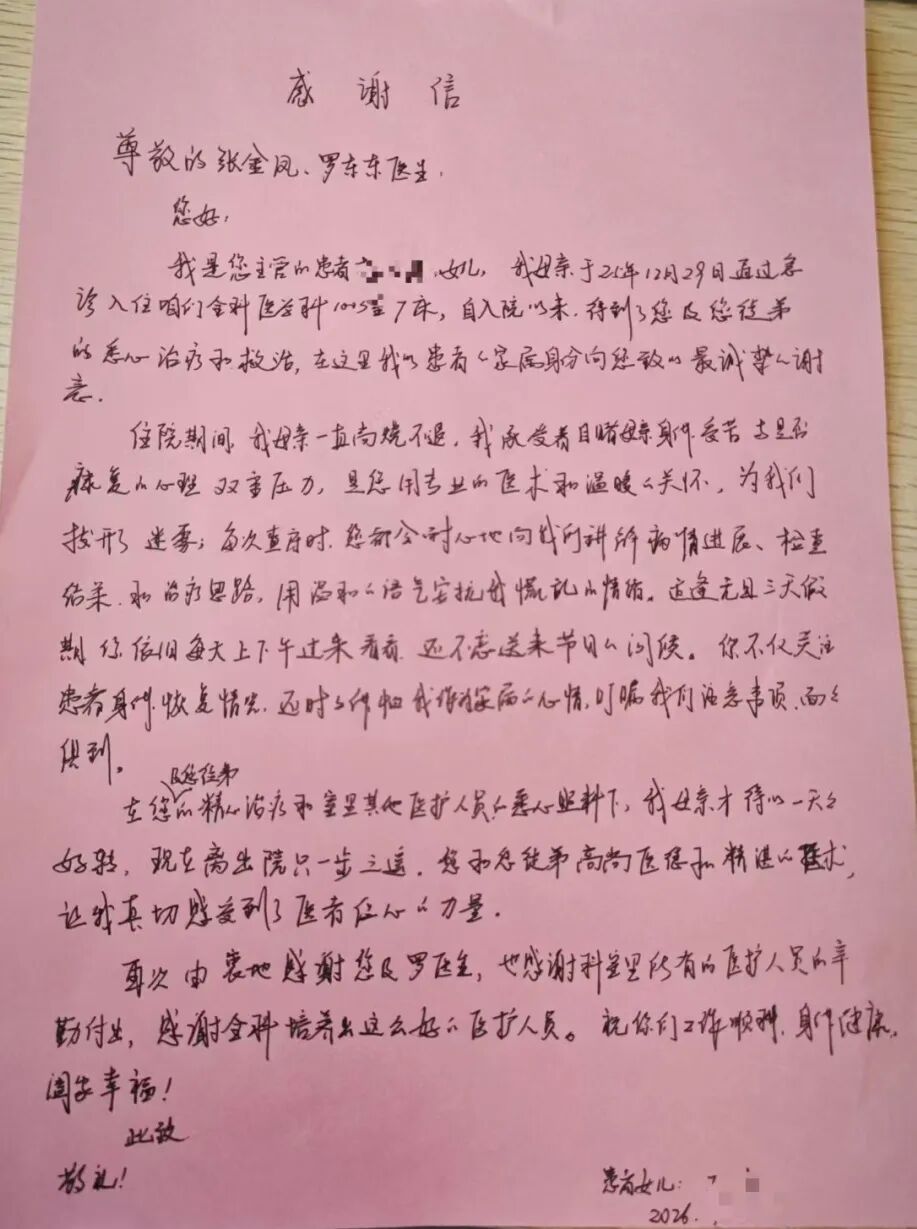 感谢信
尊敬的张金凤、罗东东医生,
您好,
我是您主管的患者 女儿,我母亲于25年12月29日通过急
诊入住咱们全科医学科1005室7床,自入院以来,得到了您及您徒弟
的悉心治疗和救治,在这里我以患者的家属身份向您致以最诚挚的谢
意.
住院期间,我母亲一直高烧不退,我承受着目睹母亲身体受苦与是否
康复的心理双重压力,是您用专业的医术和温暖的关怀,为我们
拨开迷雾;每次查房时,您都会耐心地向我们讲解病情进展、检查
结果、和治疗思路,用温和的语气安抚我慌乱的情绪。适逢元旦三天假
期你依旧每天上下午过来看看,还不忘送来节日的问候。你不仅关注
患者身体恢复情况,还时 我作为家属的心情,叮嘱我们注意事项,面面
俱到。
在您及您徒弟的精心治疗和室里其他医护人员的悉心照料下,我母亲才得以一天天
好转,现在离出院只一步之遥,您和您徒弟高尚医德和精湛的医术,
让我真切感受到了医者仁心的力量.
再次由衷地感谢您及罗医生,也感谢科室里所有的医护人员的辛
勤付出,感谢全科培养出这么好的医护人员。祝你们工作顺利,身体健康,
阖家幸福!
此致
敬礼!
患者女儿:
2026.